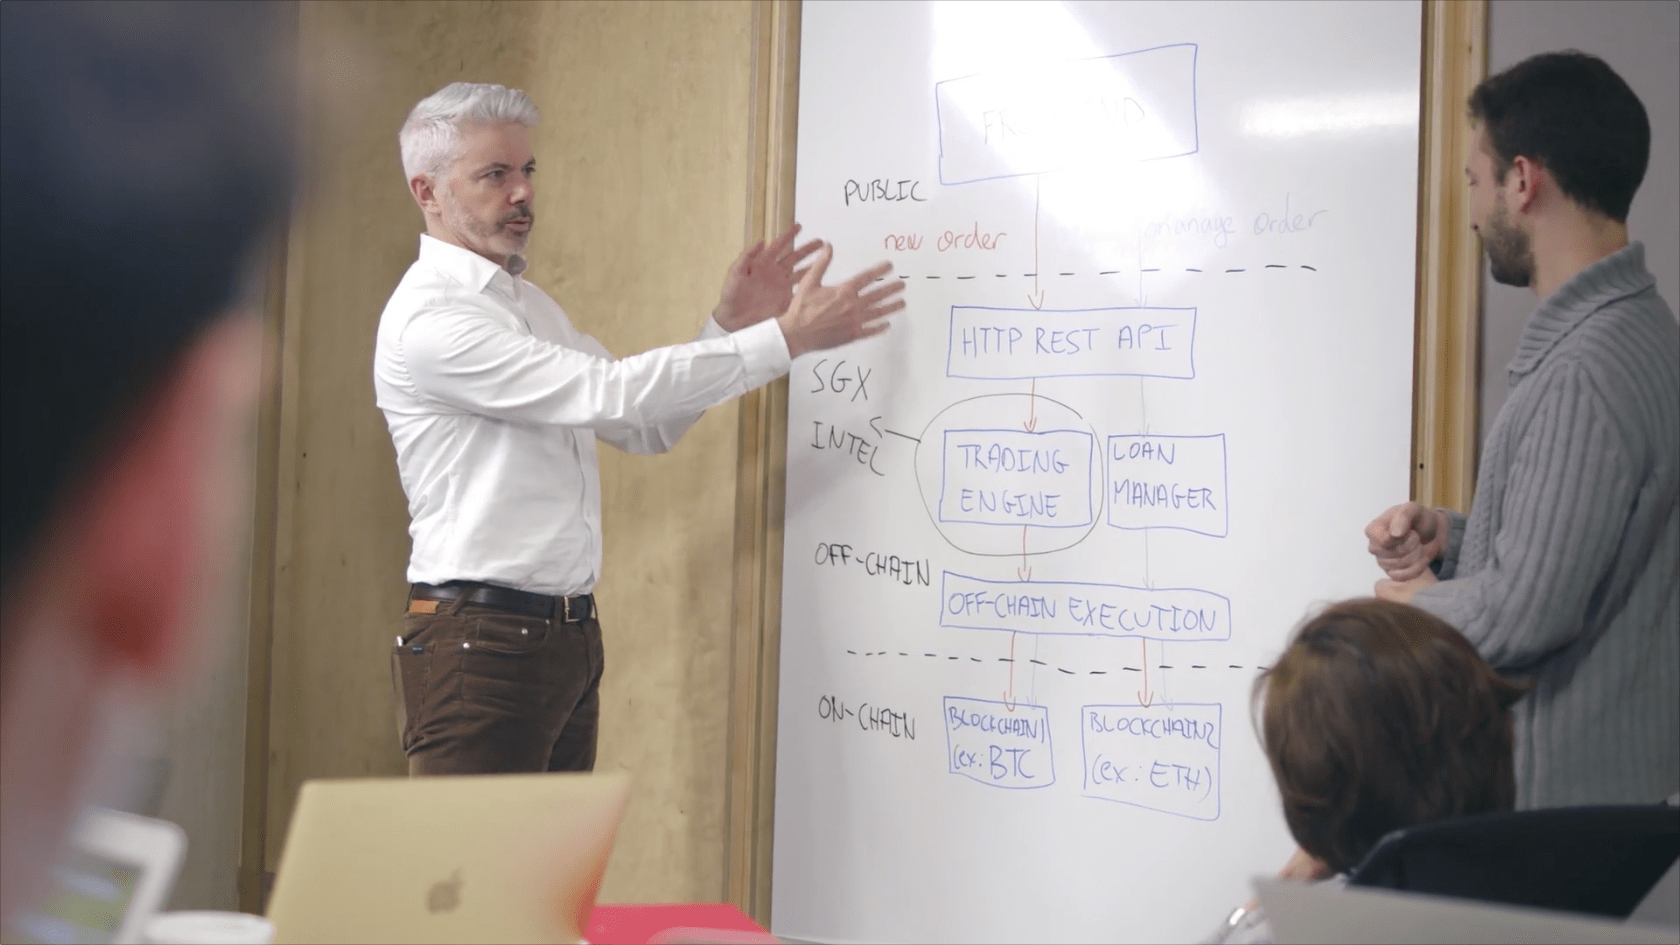 PUBLIC
new order
manage order
HTTP REST API
SGX
INTEL
TRADING
ENGINE
LOAN
MANAGER
OFF-CHAIN
OFF-CHAIN EXECUTION
ON-CHAIN
BLOCKCHAIN1
(ex: BTC
BLOCKCHAIN2
(ex: ETH)